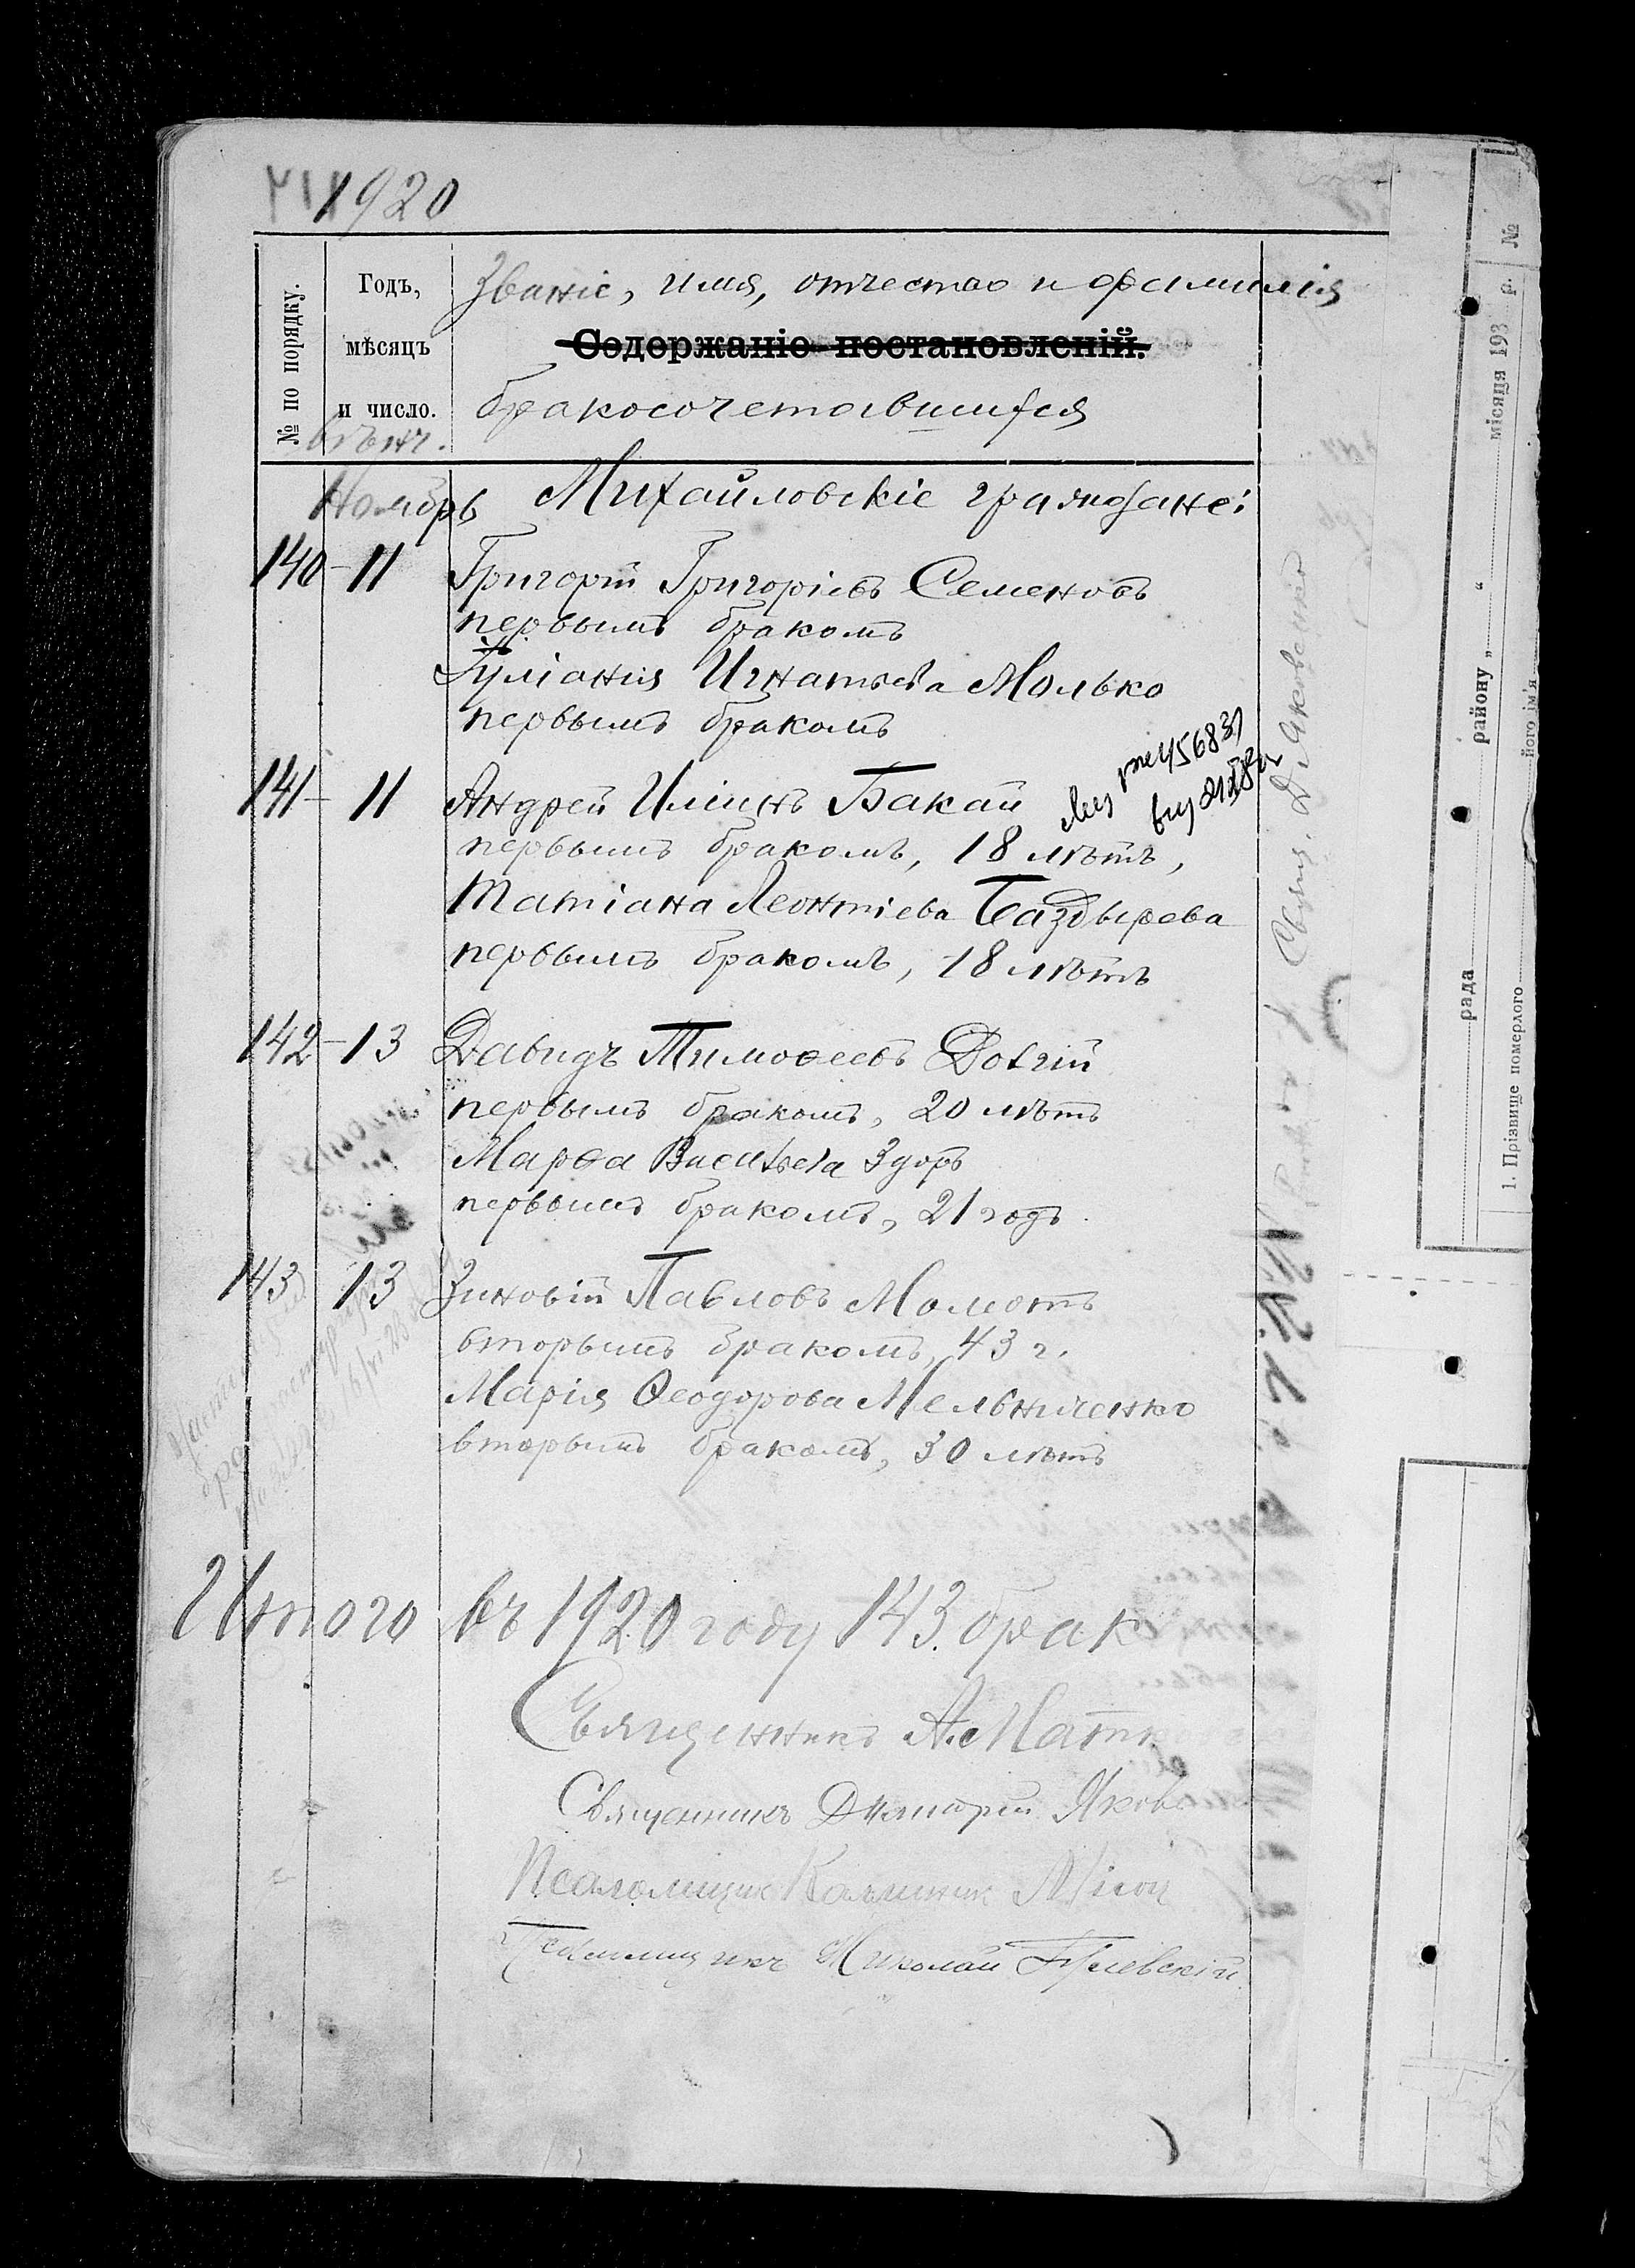 1920
№ по порядку.
Годъ,
мѣсяцъ
и число.
вѣнч.
Званіе, имя, отчество и фамилія
Содержаніе постановленій.
бракосочетавшихся
Ноябрь Михайловскіе граждане:
140 - 11 Григорій Григоріевъ Семеновъ
первымъ бракомъ
Іуліанія Игнатьева Молько
первымъ бракомъ
141 - 11 Андрей Иліинъ Бакай
первымъ бракомъ, 18 лѣтъ,
Татіана Леонтіева Баздырева
первымъ бракомъ, 18 лѣтъ
142 - 13 Давидъ Тимоѳеевъ Довгій
первымъ бракомъ, 20 лѣтъ
Марѳа Васильева Здоръ
первымъ бракомъ, 21 годъ
143 13 Зиновій Павловъ Момотъ
вторымъ бракомъ, 43 г.
Марія Ѳеодорова Мельниченко
вторымъ бракомъ, 30 лѣтъ
Итого въ 1920 году 143 брак
Священникъ А. Матк
Священникъ Димитрій Яков
Псаломщик Калиник
Псаломщикъ Николай
Свящ. Д. Яковенко
№
місяця 193 р.
району „ “
рада
його ім'я
1. Прізвище померлого